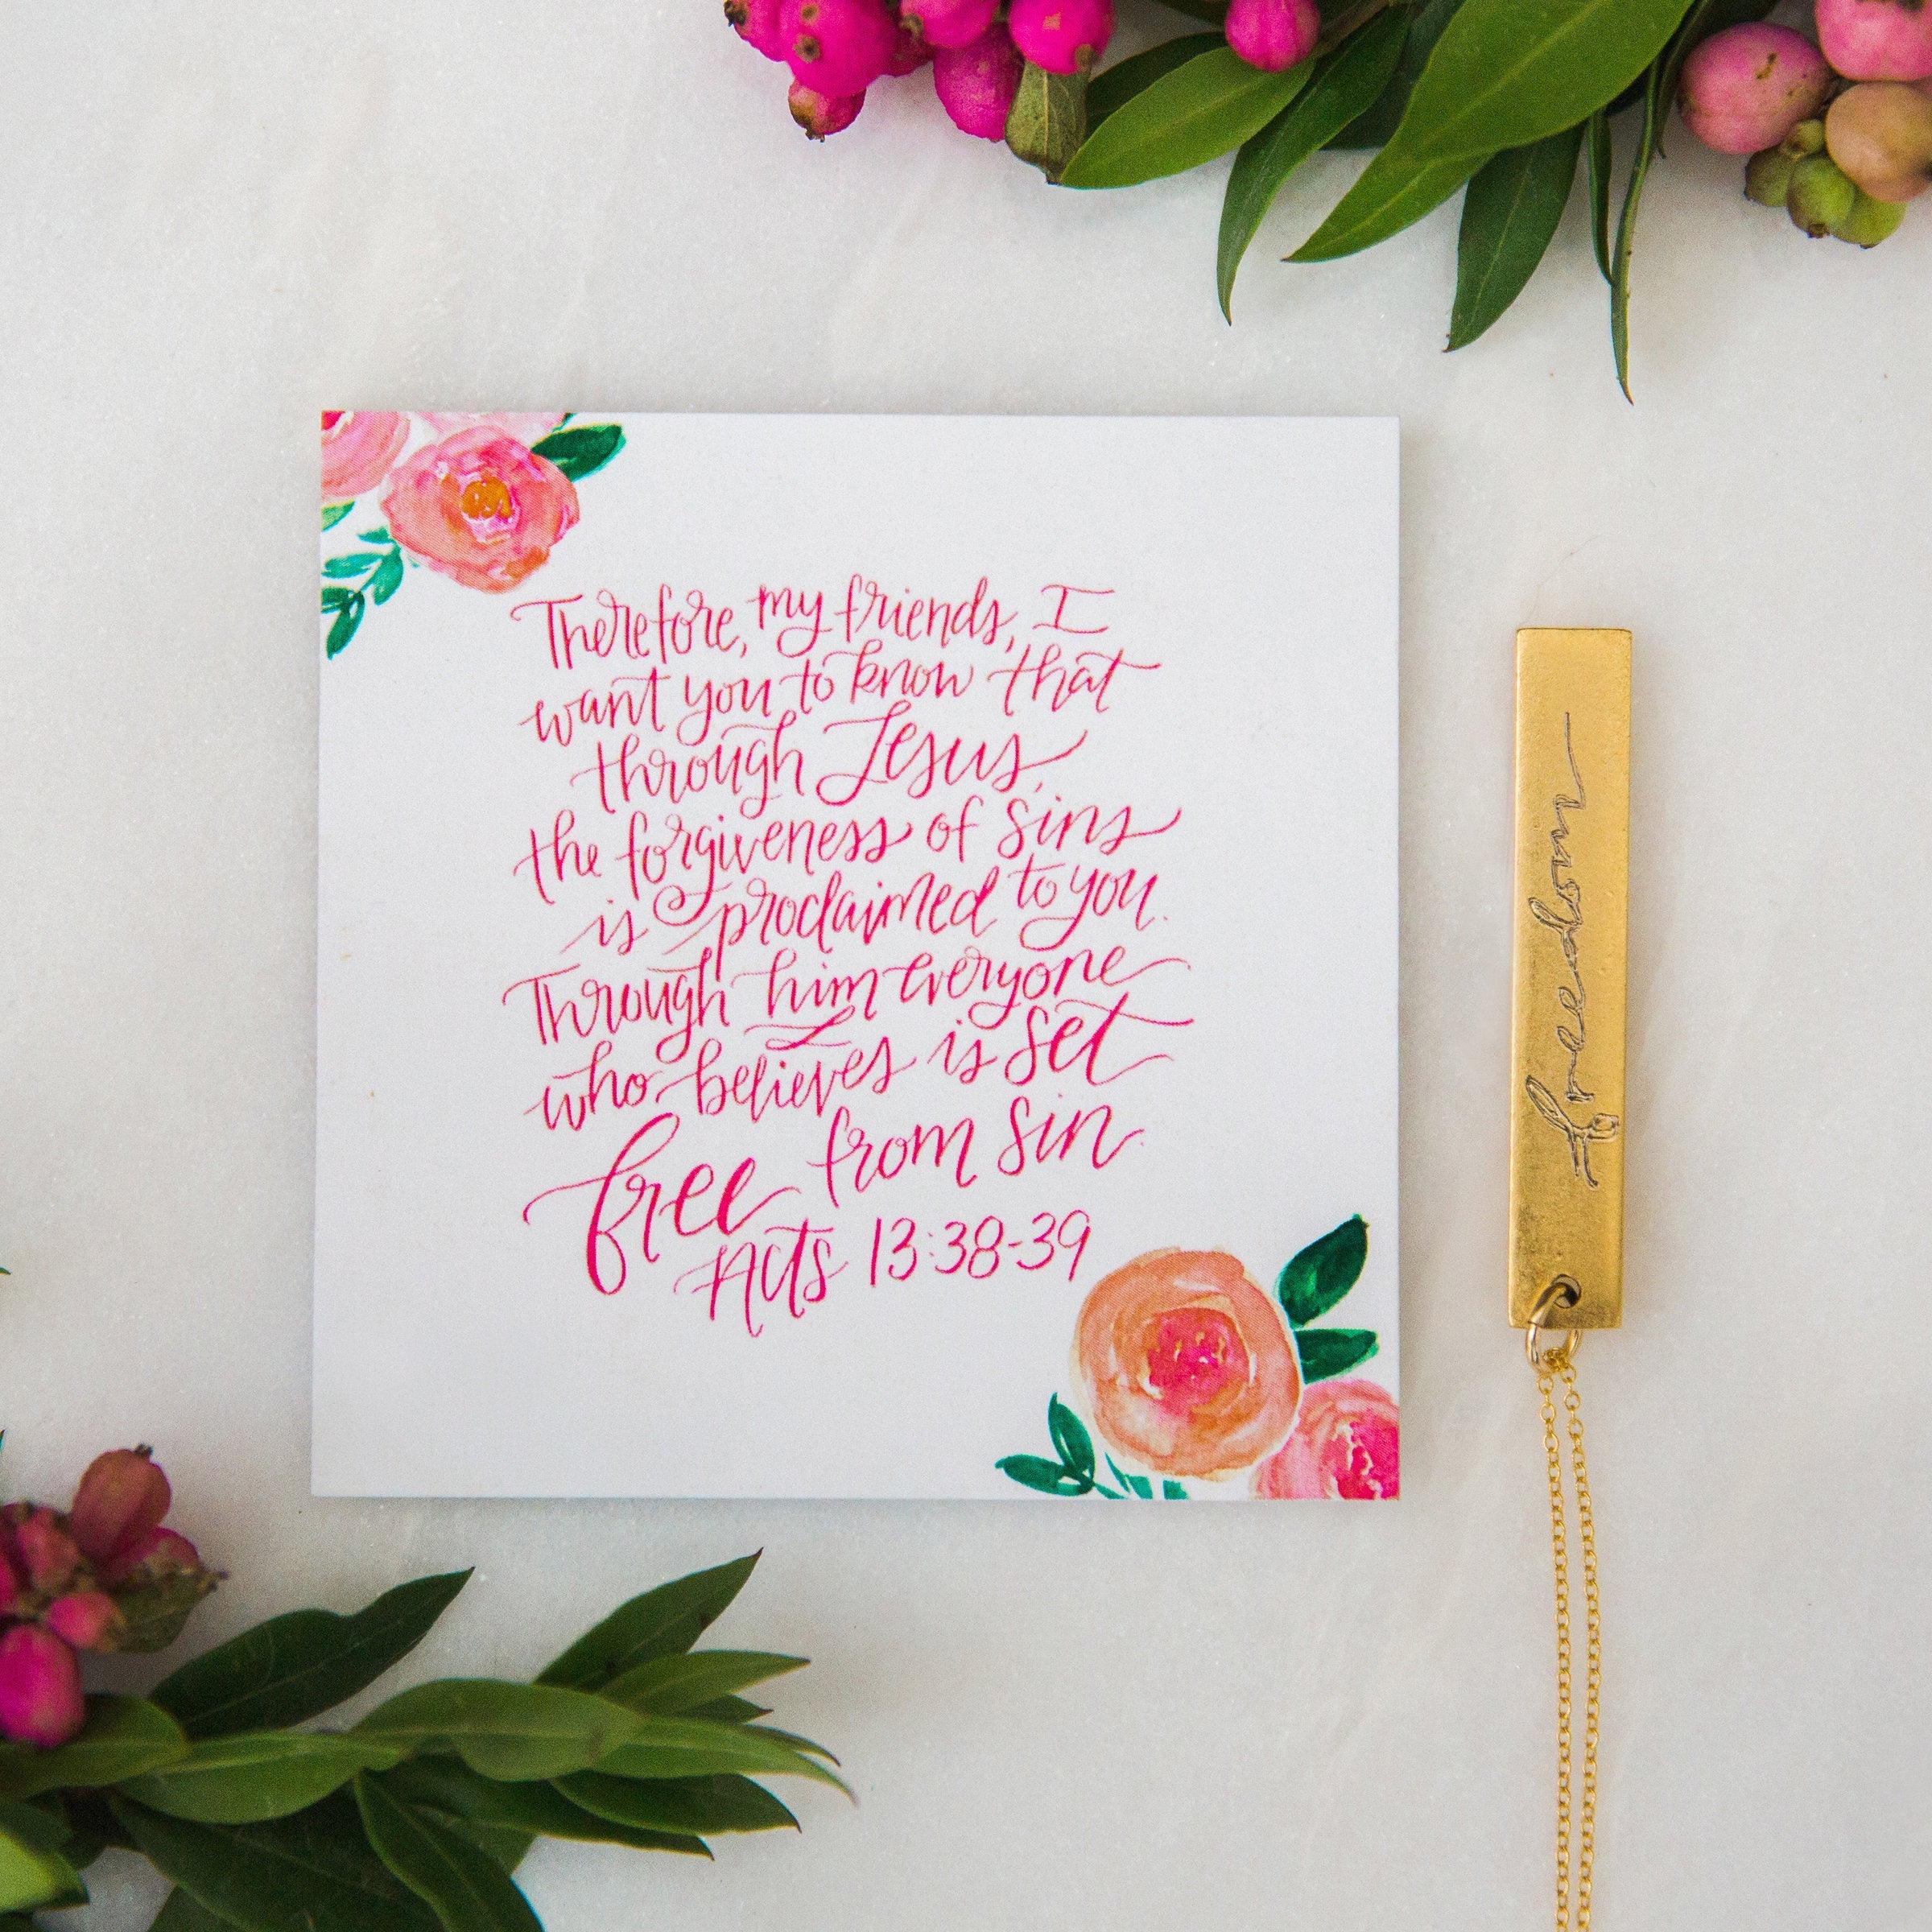 Therefore, my friends, I
want you to know that
through Jesus,
the forgiveness of sins
is proclaimed to you.
Through him everyone
who believes is set
free from sin.
Acts 13:38-39
freedom